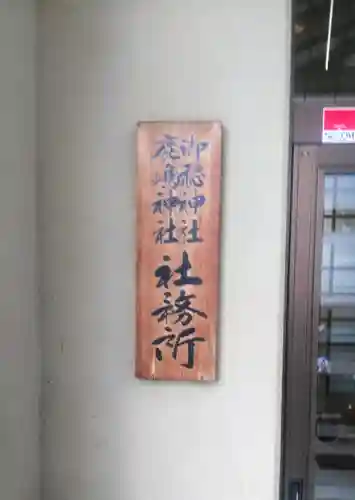 御 神社
鹿嶋神社
社務所